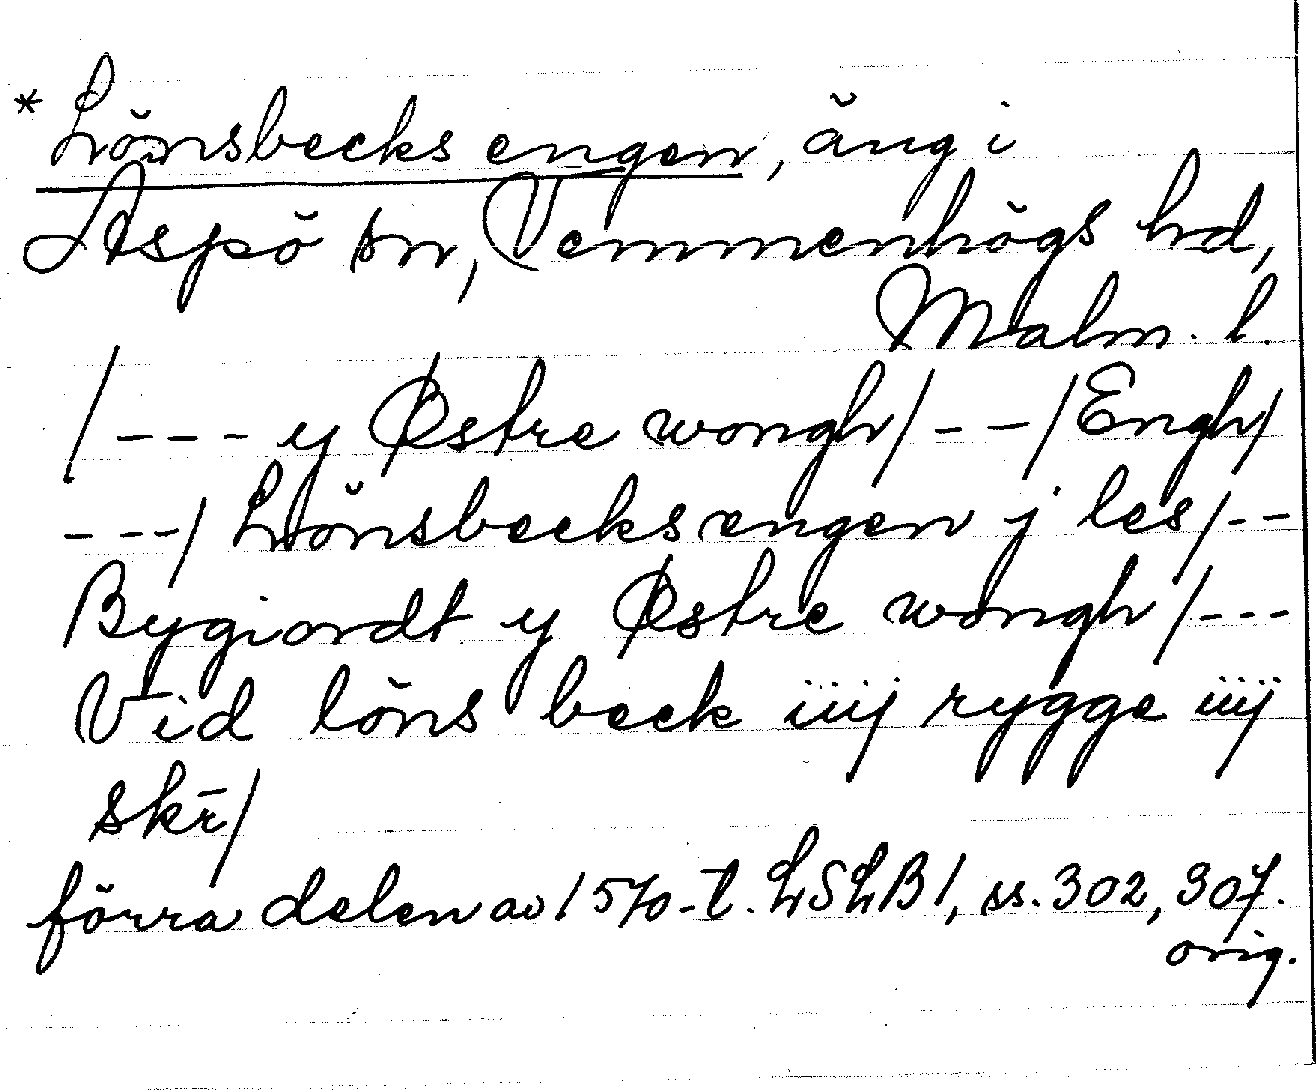 * Lönsbecks engen, äng i
Aspö sn, Vemmenhögs hd,
Malm. l.
/--- y Østre wongh/--/Engh/
---/ Lönsbecks engen j les/--
Bygiordt y Østre wongh/---
Vid löns beck iiij rygge iiij
skr̄/
förra delen av 1570-t. LSLB1, ss. 302, 307.
orig.